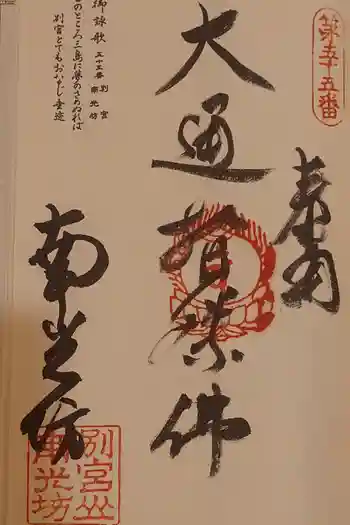 第五十五番
奉納
大通智勝佛
御詠歌 五十五番 別宮 南光坊
このところ三島に夢のさめぬれば
別宮とてもおなじ垂迹
南光坊
別宮山
南光坊